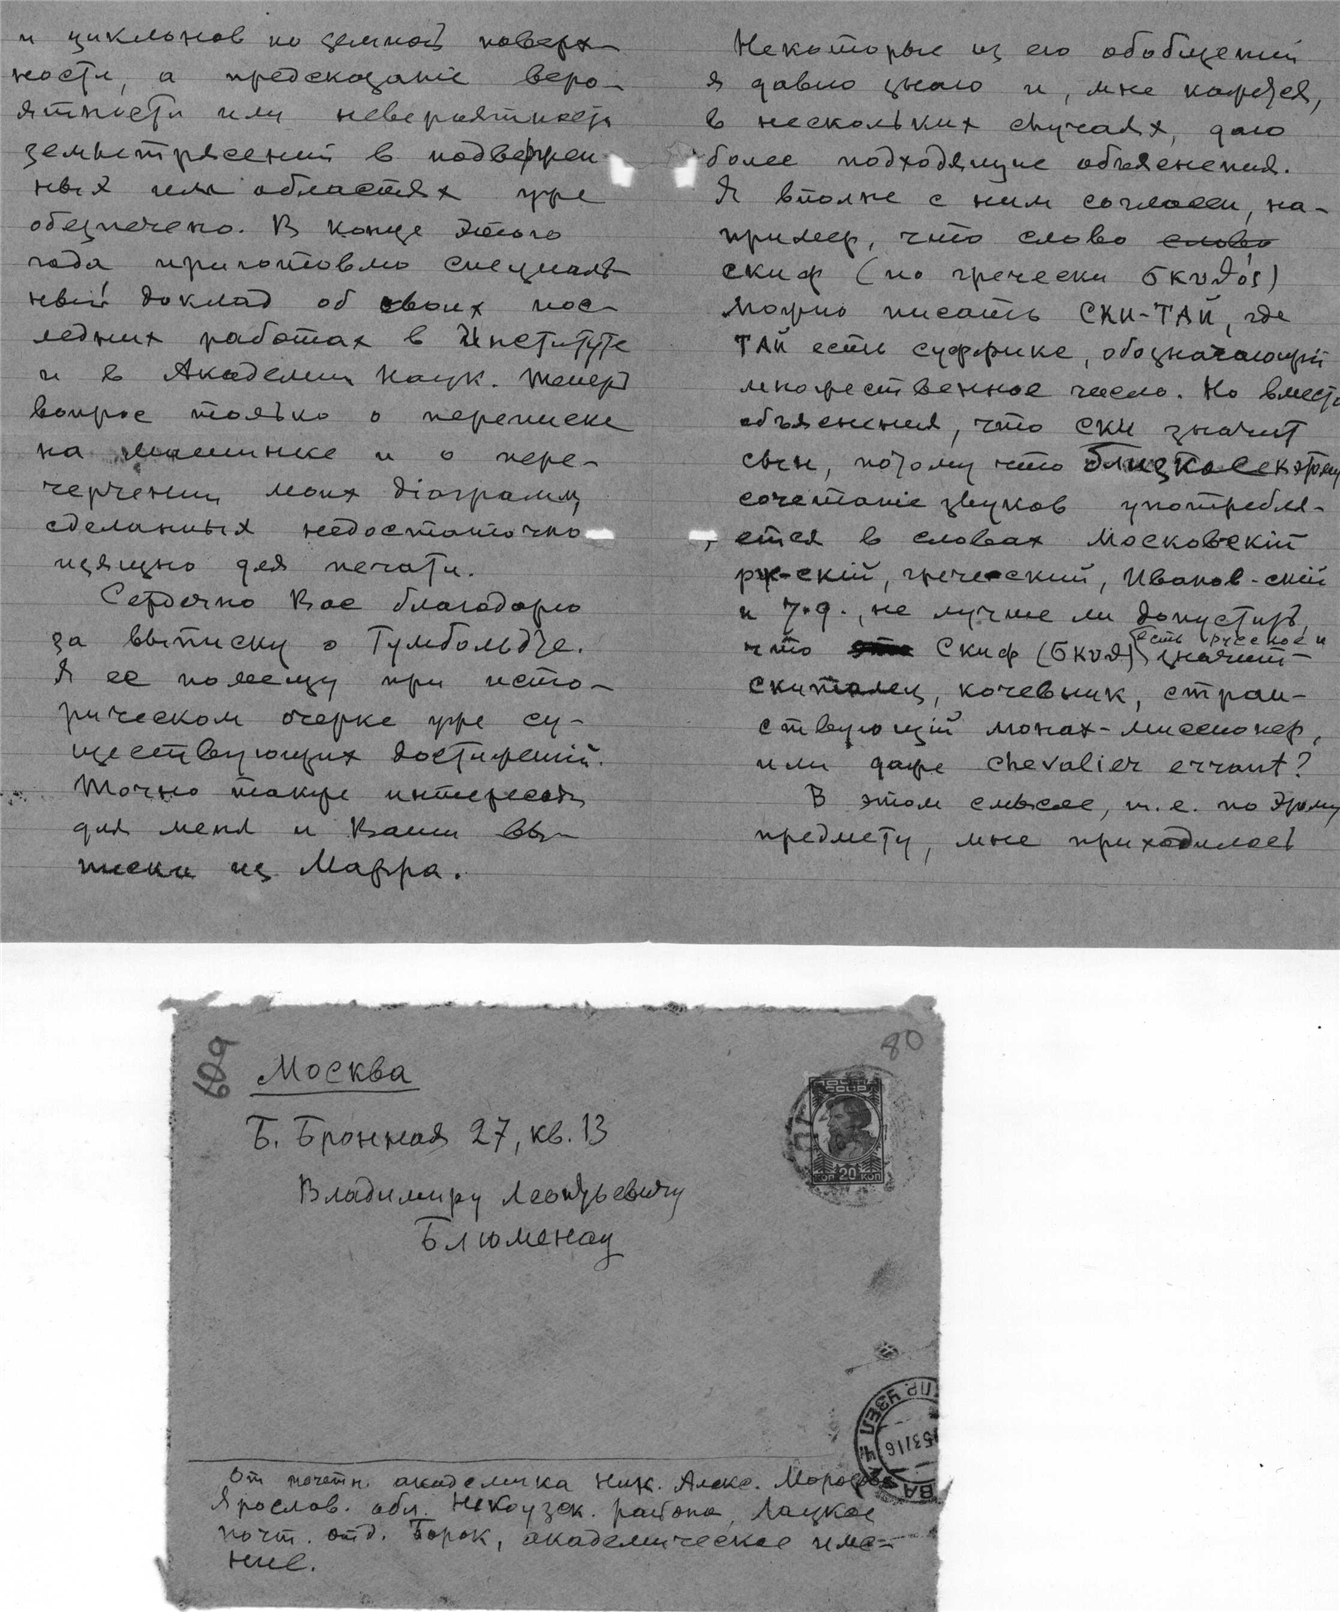 и циклонов по земной поверх-
ности, а предсказаніе веро-
ятности или невероятности
землетрясений в подвержен-
ных им областях уже
обезпечено. В конце этого
года приготовлю специаль-
ный доклад об своих пос-
ледних работах в Институте
и в Академии Наук. Теперь
вопрос только о переписке
на машинке и о пере-
черчении моих діаграмм,
сделанных недостаточно
изящно для печати.
Сердечно Вас благодарю
за выписку о Гумбольдте.
Я ее помещу при исто-
рическом очерке уже су-
ществующих достижений.
Точно также интересны
для меня и Ваши вы-
писки из Марра.
Некоторые из его обобщений
я давно знаю и, мне кажется,
в нескольких случаях, даю
более подходящие объяснения.
Я вполне с ним согласен, на-
пример, что слово слово
скиф (по гречески σκυθός)
можно писать СКИ-ТАЙ, где
ТАЙ есть суффикс, обозначающий
множественное число. Но вместо
объяснения, что СКИ значит
сын, потому что близкое к этому
сочетаніе звуков употребля-
ется в словах Московскій
рж-скій, греческий, Иванов-ский
и т.д., не лучше ли допустить,
что это Скиф (σκυθ) есть русское и значит
скиталец, кочевник, стран-
ствующій монах-миссионер,
или даже chevalier errant?
В этом смысле, т.е. по этому
предмету, мне приходилось
609
80
Москва
Б. Бронная 27, кв. 13
Владимиру Леонтьевичу
Блюменау
ПОЧТА
СССР
КОП 20 КОП
От почетн. академика Ник. Алекс. Морозова
Ярослав. обл. Некоузск. района, Лацкое
почт. отд. Борок, академическое име-
ние.